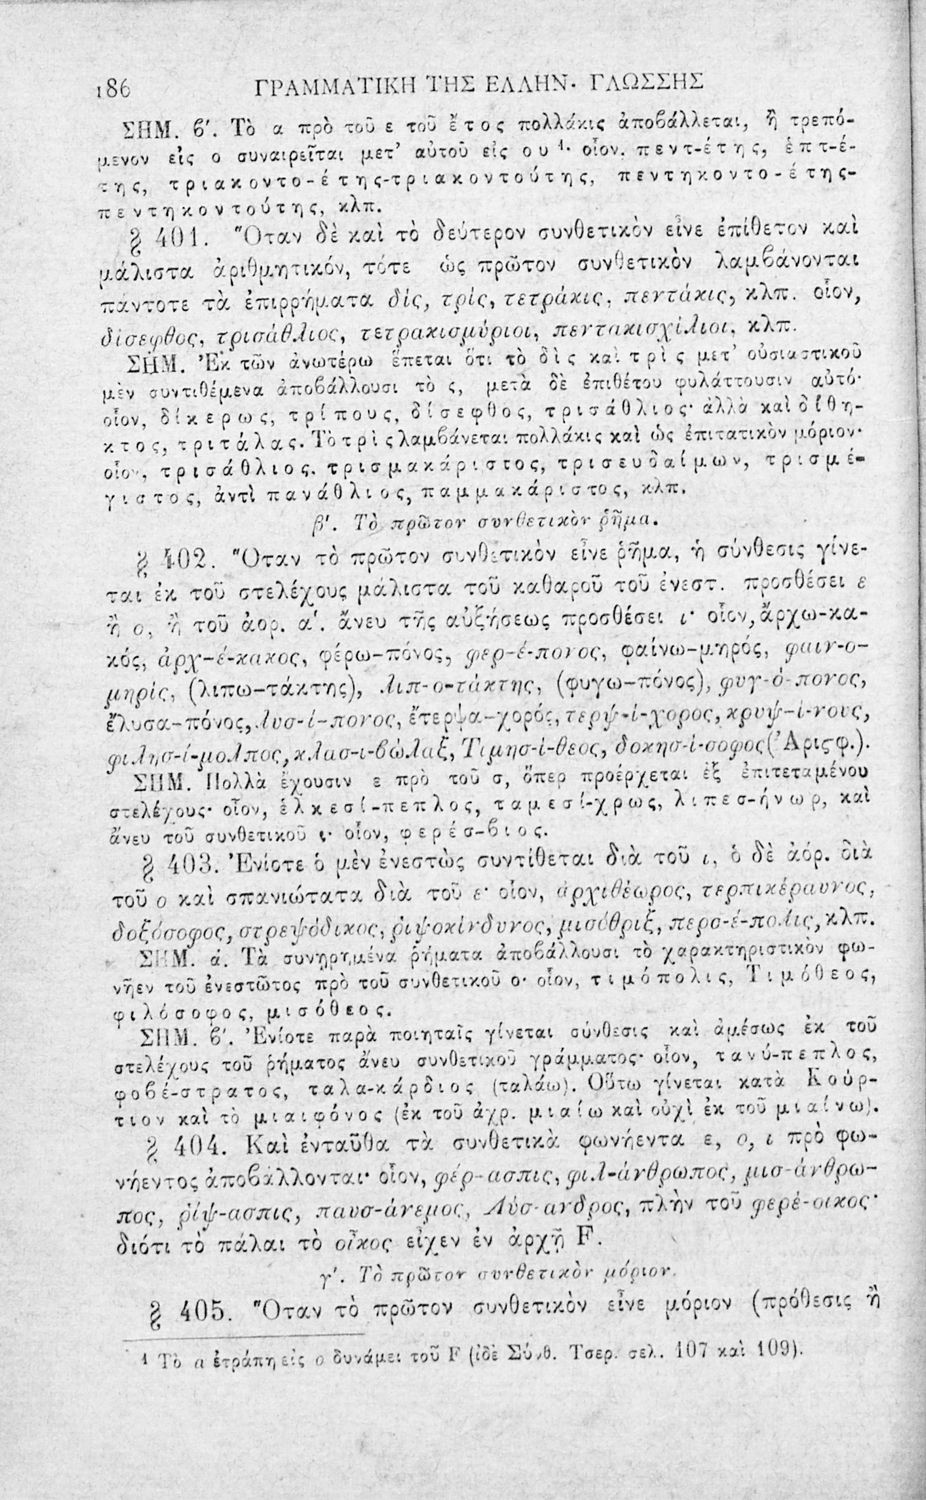 186 ΓΡΑΜΜΑΤΙΚΗ ΤΗΣ ΕΛΛΗΝ. ΓΛΩΣΣΗΣ
ΣΗΜ. β'. Τὸ α πρὸ τοῦ ε τοῦ ἔτος πολλάκις ἀποβάλλεται, ἢ τρεπό-
μενον εἰς ο συναιρεῖται μετ' αὐτοῦ εἰς ου ¹· οἷον, πεντ-έτης, ἑπτ-έ-
της, τριακοντο-έτης-τριακοντούτης, πεντηκοντο-έτης-
πεντηκοντούτης, κλπ.
§ 401. Ὅταν δὲ καὶ τὸ δεύτερον συνθετικὸν εἶνε ἐπίθετον καὶ
μάλιστα ἀριθμητικόν, τότε ὡς πρῶτον συνθετικὸν λαμβάνονται
πάντοτε τὰ ἐπιρρήματα δίς, τρίς, τετράκις, πεντάκις, κλπ. οἷον,
δίσεφθος, τρισάθλιος, τετρακισμύριοι, πεντακισχίλιοι, κλπ.
ΣΗΜ. Ἐκ τῶν ἀνωτέρω ἕπεται ὅτι τὸ δὶς καὶ τρὶς μετ' οὐσιαστικοῦ
μὲν συντιθέμενα ἀποβάλλουσι τὸ ς, μετὰ δὲ ἐπιθέτου φυλάττουσιν αὐτό·
οἷον, δίκερως, τρίπους, δίσεφθος, τρισάθλιος· ἀλλὰ καὶ δίθη-
κτος, τριτάλας. Τὸ τρὶς λαμβάνεται πολλάκις καὶ ὡς ἐπιτατικὸν μόριον·
οἷον, τρισάθλιος, τρισμακάριστος, τρισευδαίμων, τρισμέ-
γιστος, ἀντὶ πανάθλιος, παμμακάριστος, κλπ.
β'. Τὸ πρῶτον συνθετικὸν ῥῆμα.
§ 402. Ὅταν τὸ πρῶτον συνθετικὸν εἶνε ῥῆμα, ἡ σύνθεσις γίνε-
ται ἐκ τοῦ στελέχους μάλιστα τοῦ καθαροῦ τοῦ ἐνεστ. προσθέσει ε
ἢ ο, ἢ τοῦ ἀορ. α'. ἄνευ τῆς αὐξήσεως προσθέσει ι· οἷον, ἄρχω-κα-
κός, ἀρχ-έ-κακος, φέρω-πόνος, φερ-έ-πονος, φαίνω-μηρός, φαιν-ο-
μηρίς, (λιπω-τάκτης), λιπ-ο-τάκτης, (φυγω-πόνος), φυγ-ό-πονος,
ἔλυσα-πόνος, λυσ-ί-πονος, ἔτερψα-χορός, τερψ-ί-χορος, κρυψ-ί-νους,
φιλησ-ί-μολπος, κλασ-ι-βῶλαξ, Τιμησ-ί-θεος, δοκησ-ί-σοφος (Ἀριστφ.).
ΣΗΜ. Πολλὰ ἔχουσιν ε πρὸ τοῦ σ, ὅπερ προέρχεται ἐξ ἐπιτεταμένου
στελέχους· οἷον, ἑλκεσί-πεπλος, ταμεσί-χρως, λιπεσ-ήνωρ, καὶ
ἄνευ τοῦ συνθετικοῦ ι· οἷον, φερέσ-βιος.
§ 403. Ἐνίοτε ὁ μὲν ἐνεστὼς συντίθεται διὰ τοῦ ι, ὁ δὲ ἀόρ. διὰ
τοῦ ο καὶ σπανιώτατα διὰ τοῦ ε· οἷον, ἀρχιθέωρος, τερπικέραυνος,
δοξόσοφος, στρεψόδικος, ῥιψοκίνδυνος, μισόθριξ, περσ-έ-πολις, κλπ.
ΣΗΜ. ά. Τὰ συνῃρημένα ῥήματα ἀποβάλλουσι τὸ χαρακτηριστικὸν φω-
νῆεν τοῦ ἐνεστῶτος πρὸ τοῦ συνθετικοῦ ο· οἷον, τιμόπολις, Τιμόθεος,
φιλόσοφος, μισόθεος.
ΣΗΜ. β'. Ἐνίοτε παρὰ ποιηταῖς γίνεται σύνθεσις καὶ ἀμέσως ἐκ τοῦ
στελέχους τοῦ ῥήματος ἄνευ συνθετικοῦ γράμματος· οἷον, τανύ-πεπλος,
φοβέ-στρατος, ταλα-κάρδιος (ταλάω). Οὕτω γίνεται κατὰ Κούρ-
τιον καὶ τὸ μιαιφόνος (ἐκ τοῦ ἀχρ. μιαίω καὶ οὐχὶ ἐκ τοῦ μιαίνω).
§ 404. Καὶ ἐνταῦθα τὰ συνθετικὰ φωνήεντα ε, ο, ι πρὸ φω-
νήεντος ἀποβάλλονται· οἷον, φέρ-ασπις, φιλ-άνθρωπος, μισ-άνθρω-
πος, ῥίψ-ασπις, παυσ-άνεμος, Λύσ-ανδρος, πλὴν τοῦ φερέ-οικος·
διότι τὸ πάλαι τὸ οἶκος εἶχεν ἐν ἀρχῇ F.
γ'. Τὸ πρῶτον συνθετικὸν μόριον.
§ 405. Ὅταν τὸ πρῶτον συνθετικὸν εἶνε μόριον (πρόθεσις ἢ
¹ Τὸ α ἐτράπη εἰς ο δυνάμει τοῦ F (ἰδὲ Σύνθ. Τσερ. σελ. 107 καὶ 109).